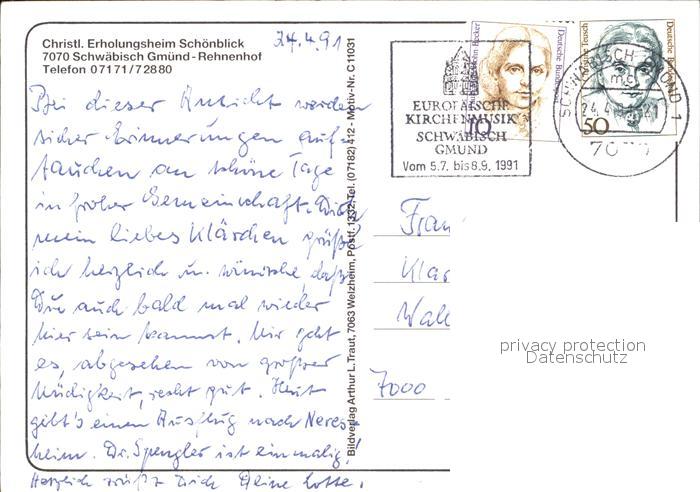 Christl. Erholungsheim Schönblick
7070 Schwäbisch Gmünd-Rehnenhof
Telefon 07171/72880
24.4.91
Bei dieser Ansicht werden
sicher Erinnerungen auf-
tauchen an schöne Tage
in froher Gemeinschaft. Dich
mein liebes Klärchen grüße
ich herzlich u. wünsche, daß
Du auch bald mal wieder
hier sein kannst. Mir geht
es, abgesehen von großer
Müdigkeit, recht gut. Heut
gibt's einen Ausflug nach Neres-
heim. Dr. Spengler ist einmalig!
Herzlich grüßt Dich Deine Lotte.
Bildverlag Arthur L. Traut, 7063 Welzheim, Postf. 1332, Tel. (07182) 412 - Motiv-Nr. C11031
EUROPÄISCHE
KIRCHENMUSIK
SCHWÄBISCH
GMÜND
Vom 5.7. bis 8.9. 1991
Deutsche Bundespost
10
50
SCHWÄBISCH GMÜND 1
mc
24.4.
7070
Frau
Klär
Wal
7000
privacy protection
Datenschutz